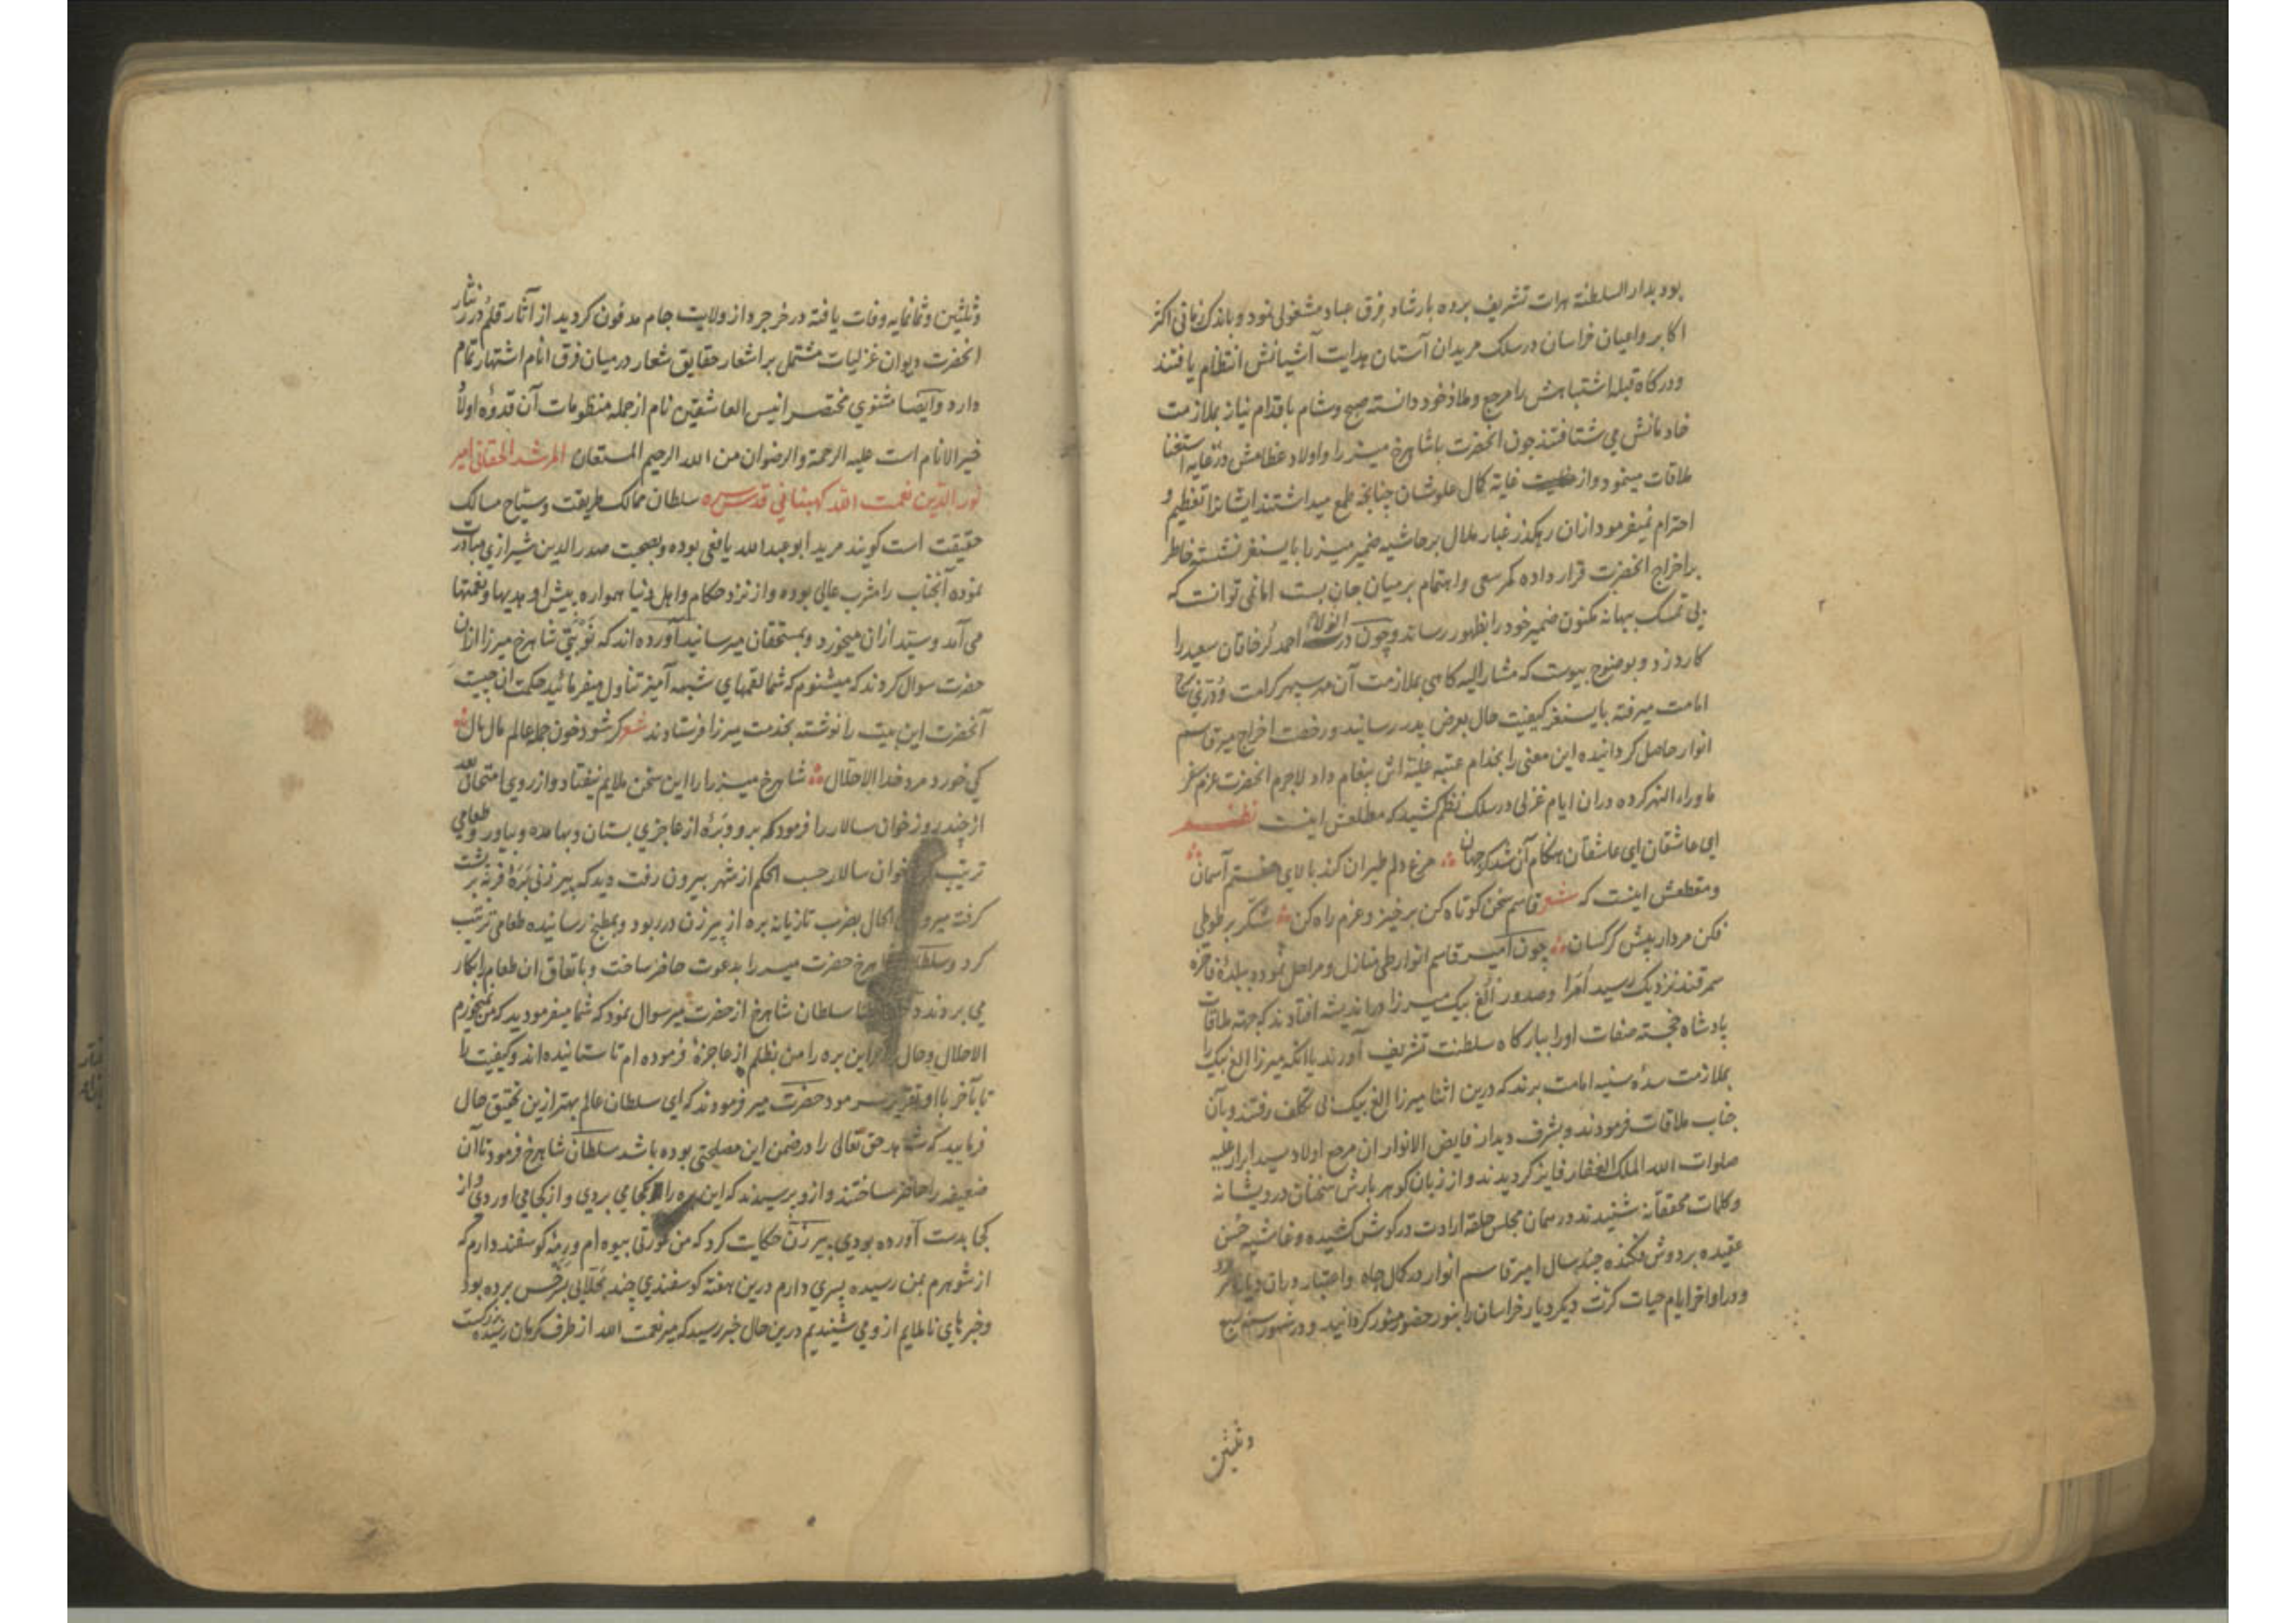 بود بدار السلطنة هرات تشریف برده بارشاد فرق عباد مشغولی نمود و باندک زمانی اکثر
اکابر و اعیان خراسان در سلک مریدان آستان هدایت آشیانش انتظام یافتند
و درکاه قبله اشتباهش را مرجع و ملاذ خود دانسته صبح و شام باقدام نیاز بملازمت
خادمانش می شتافتند جون انحضرت باشاهرخ میرزا و اولاد عظامش در غایه استغنا
ملاقات مینمود و از غایة کمال علوشان چنانچه طمع میداشتند ایشانرا تعظیم و
احترام نمیفرمود ازان رهکذر غبار ملال بر حاشیه ضمیر میرزا بایسنغر نشسته خاطر
بر اخراج انحضرت قرار داده کمر سعی و اهتمام بر میان جان بست اما نمی توانست که
بی تمسک بهانه مکنون ضمیر خود را بظهور رساند و چون در احمد لر خاقان سعید را
کارد زد و بوضوح پیوست که مشار الیه کاهی بملازمت آن مهر سپهر کرامت و دری
امامت میرفته بایسنغر کیفیت حال بعرض پدر رسانید و رخصت اخراج میر قاسم
انوار حاصل کردانیده این معنی را بخدام عتبه علیّه اش پیغام داد لاجرم انحضرت عزم سفر
ماوراء النهر کرده دران ایام غزلی در سلک نظم کشید که مطلعش اینست نظم
ای عاشقان ای عاشقان هنکام آن شد کز جهان مرغ دلم طیران کند بالای هفتم آسمان
و مقطعش اینست که شعر قاسم سخن کوتاه کن برخیز و عزم راه کن شکّر بر طوطی
فکن مردار پیش کرکسان چون امیر قاسم انوار طی منازل و مراحل نموده ببلدۀ فاخرۀ
سمرقند نزدیک رسید اُمَرا و صدور الغ بیک میرزا در اندیشه افتادند که جهة ملاقات
پادشاه خجسته صفات او را ببارکاه سلطنت تشریف آورند یا انکه میرزا الغ بیک را
بملازمت سدۀ سنیه امامت برند که درین اثنا میرزا الغ بیک بی تکلف رفتند و بآن
جناب ملاقات فرمودند و بشرف دیدار فایض الانوار ان مرجع اولاد سید ابرار علیه
صلوات الله الملک الغفار فایز کردیدند و از زبان کوهر بارش سخنان درویشانه
و کلمات محققانه شنیدند در همان مجلس حلقه ارادت در کوش کشیده و غاشیه حُسن
عقیده بر دوش فکنده چند سال امیر قاسم انوار در کمال جاه و اعتبار دران دیار بسر برد
و در اواخر ایام حیات کرت دیکر دیار خراسان را بنور حضور منور کردانید و در شهور سنه سبع
وثلثین
وثلثین و ثمانمایه وفات یافته در خرجرد از ولایت جام مدفون کردید از آثار قلم درر نثار
انحضرت دیوان غزلیات مشتمل بر اشعار حقایق شعار در میان فرق انام اشتهار تمام
دارد و ایضا مثنوی مختصر انیس العاشقین نام از جمله منظومات آن قدوۀ اولاد
خیر الانام است علیه الرحمة والرضوان من الله الرحیم المستعان المرشد الحقانی امیر
نور الدین نعمت الله کهبنانی قدس سره سلطان ممالک طریقت و سیّاح مسالک
حقیقت است کویند مرید ابو عبد الله یافعی بوده و بصحبت صدر الدین شیرازی مبادرت
نموده آنجناب را مشرب عالی بوده و از نزد حکام و اهل دنیا همواره پیش او هدیها و نعمتها
می آمد و سیّد ازان میخورد و بمستحقان میرسانید آورده اند که نَوبَتی شاهرخ میرزا ازان
حضرت سوال کردند که میشنوم که شما لقمهای شبهه آمیز تناول میفرمائید حکمت ان چیست
آنحضرت این بیت را نوشته بخدمت میرزا فرستادند شعر کر شود خون جمله عالم مال مال
کی خورد مرد خدا الا حلال شاهرخ میرزا را این سخن ملایم نیفتاد و از روی امتحان بعد
از چند روز خوان سالار را فرمود که برو و برۀ از عاجزی بستان و بها مده و بیاور و طعامی
ترتیب خوان سالار حسب الحکم از شهر بیرون رفت دید که پیر زنی بَرۀ فربه بر پشت
کرفته میرود الحال بضرب تازیانه بره از پیر زن در ربود و بمطبخ رسانیده طعامی ترتیب
کرد و سلطان شاهرخ حضرت میر را بدعوت حاضر ساخت و باتفاق ان طعام را بکار
می بردند در اثنا سلطان شاهرخ از حضرت میر سوال نمود که شما میفرمودید که من نمیخورم
الا حلال و حال این بره را من بظلم از عاجزۀ فرموده ام تا ستانیده اند و کیفیت را
تا بآخر با او تقریر فرمود حضرت میر فرمودند که ای سلطان عالم بهتر ازین تحقیق حال
فرمایید که شاید حق تعالی را در ضمن این مصلحتی بوده باشد سلطان شاهرخ فرمود تا آن
ضعیفه را حاضر ساختند و ازو پرسیدند که این بره را کجا می بردی و از کجا می اوردی و از
کجا بدست آورده بودی پیر زن حکایت کرد که من عورتی بیوه ام و رمۀ کوسفند دارم که
از شوهرم بمن رسیده پسری دارم درین هفته کوسفندی چند بجلابی بسرخس برده بود
و خبر های ناملایم از و می شنیدیم درین حال خبر رسید که میر نعمت الله از طرف کرمان